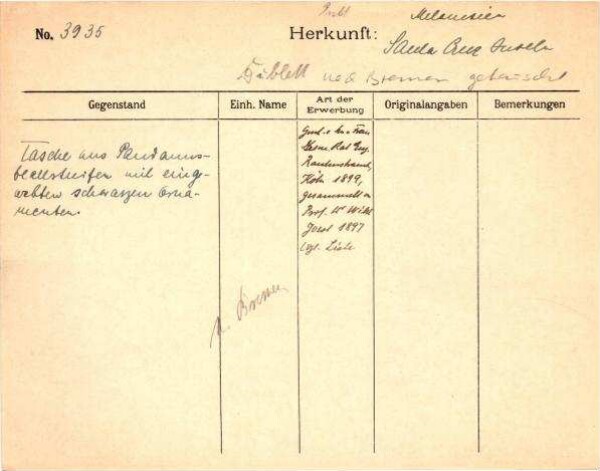 Melanesien
No. 3935 Herkunft: Santa Cruz Inseln
Dublett nach Bremen getauscht
Gegenstand Einh. Name Art der Erwerbung Originalangaben Bemerkungen
Tasche aus Pandanus-
blattstreifen mit einge-
webten schwarzen Orna-
menten.
Frau
Rautenstrauch,
Köln 1899,
gesammelt v.
Prof. Dr
1897
vgl. Liste
n. Bremen